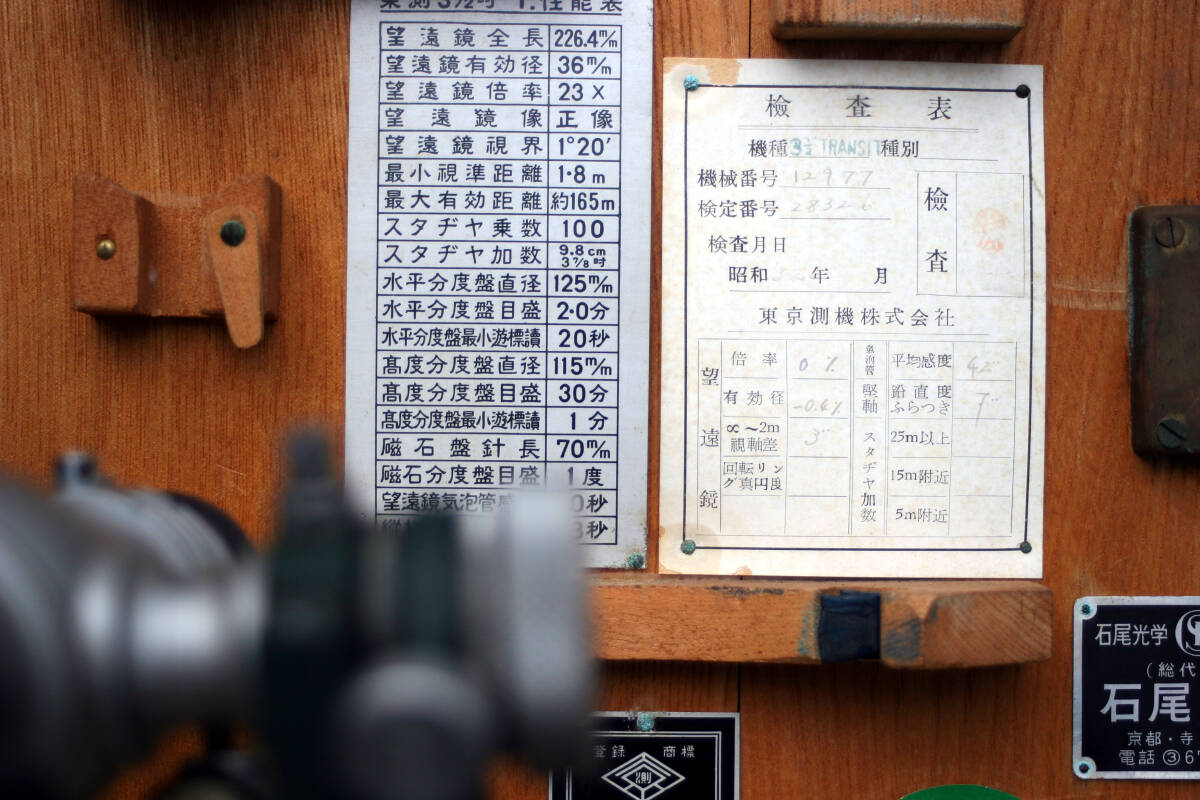 東測3½吋 T.性能表
望遠鏡全長 226.4m/m
望遠鏡有効径 36m/m
望遠鏡倍率 23×
望遠鏡像 正像
望遠鏡視界 1°20′
最小視準距離 1·8m
最大有効距離 約165m
スタヂヤ乗数 100
スタヂヤ加数 9.8cm 3⅞吋
水平分度盤直径 125m/m
水平分度盤目盛 2·0分
水平分度盤最小遊標讀 20秒
髙度分度盤直径 115m/m
髙度分度盤目盛 30分
髙度分度盤最小遊標讀 1分
磁石盤針長 70m/m
磁石分度盤目盛 1度
望遠鏡気泡管 秒
秒
檢査表
機種 3½ TRANSIT 種別
機械番号 12977
検定番号
検査月日
昭和 年 月
檢査
東京測機株式会社
望遠鏡
倍率 0%
有効径 -0.4%
∝〜2m視軸差 3″
回転リング真円度
氣泡管 平均感度 42″
堅軸 鉛直度ふらつき 7″
スタヂヤ加数
25m以上
15m附近
5m附近
登録 商標
測
石尾光学
(総代
石尾
京都・寺
電話③67